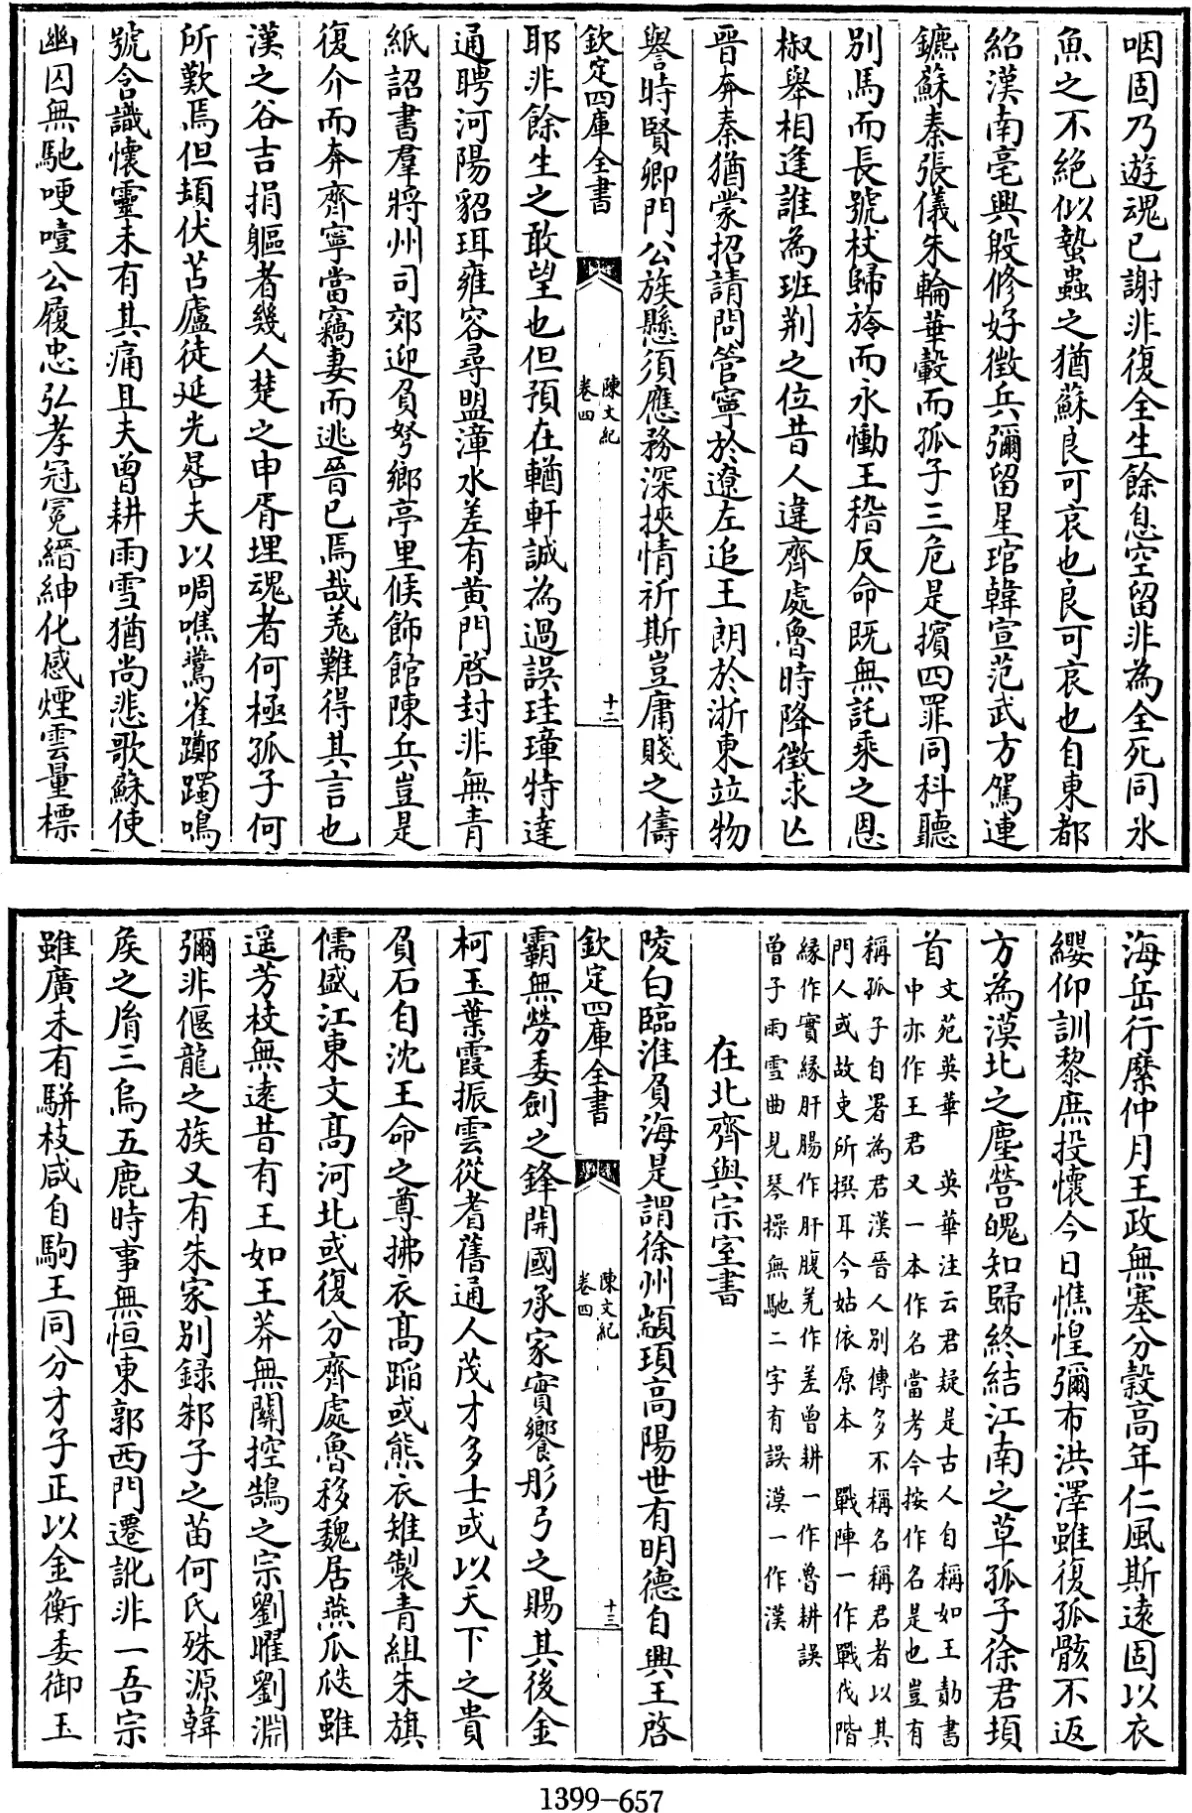 咽固乃遊魂已謝非復全生餘息空留非為全死同氷
魚之不絶似蟄蟲之猶蘇良可哀也良可哀也自東都
紹漢南亳興殷修好徴兵彌留星琯韓宣范武方駕連
鑣蘇秦張儀朱輪華轂而孤子三危是擯四罪同科聽
别馬而長號杖歸旍而永慟王稽反命既無託乘之恩
椒舉相逢誰為班荆之位昔人違齊處魯時降徴求亾
晉奔秦猶蒙招請問管寧於遼左追王朗於浙東竝物
譽時賢卿門公族懸須應務深挾情祈斯豈庸賤之儔
欽定四庫全書
陳文紀
卷四
十二
耶非餘生之敢望也但預在輶軒誠為過誤珪璋特達
通聘河陽貂珥雍容尋盟漳水差有黄門啓封非無青
紙詔書羣將州司郊迎負弩鄉亭里候飾館陳兵豈是
復介而奔齊寧當竊妻而逃晉已焉哉羌難得其言也
漢之谷吉捐軀者幾人楚之申胥埋魂者何極孤子何
所歎焉但頳伏苫廬徒延光晷夫以啁噍鷰雀躑躅鳴
號含識懷靈未有其痛且夫曾耕雨雪猶尚悲歌蘇使
幽囚無馳哽噎公履忠弘孝冠冕縉紳化感煙雲量標
海岳行縻仲月王政無塞分榖高年仁風斯遠固以衣
纓仰訓黎庶投懷今日憔惶彌布洪澤雖復孤骸不返
方為漠北之塵營魄知歸終結江南之草孤子徐君頓
首
文苑英華　英華注云君疑是古人自稱如王勣書
中亦作王君又一本作名當考今按作名是也豈有
稱孤子自署為君漢晉人别傳多不稱名稱君者以其
門人或故吏所撰耳今姑依原本　戰陣一作戰伐階
縁作實縁肝腸作肝腹羌作差曾耕一作魯耕誤
曾子雨雪曲見琴操無馳二字有誤漠一作漢
在北齊與宗室書
陵白臨淮負海是謂徐州顓頊高陽世有明德自興王啓
欽定四庫全書
陳文紀
卷四
十三
霸無勞委劍之鋒開國承家實饗彤弓之賜其後金
柯玉葉霞振雲從耆舊通人茂才多士或以天下之貴
負石自沈王命之尊拂衣高蹈或熊衣雉製青組朱旗
儒盛江東文高河北或復分齊處魯移魏居燕瓜瓞雖
遥芳枝無遠昔有王如王莽無關控鵠之宗劉曜劉淵
彌非偃龍之族又有朱家别録邾子之苗何氏殊源韓
矦之胤三烏五鹿時事無恒東郭西門遷訛非一吾宗
雖廣未有駢枝咸自駒王同分才子正以金衡委御玉
1399-657